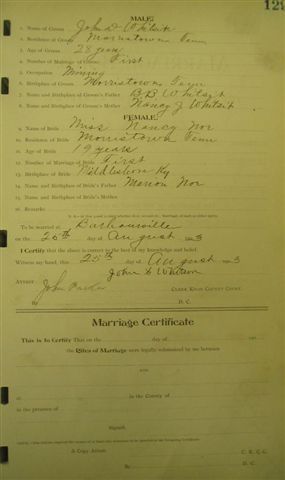 129
MALE:
1. Name of Groom John D Whitsit
2. Residence of Groom Morristown Tenn
3. Age of Groom 28 years
4. Number of Marriage of Groom First
5. Occupation Mining
6. Birthplace of Groom Morristown Tenn
7. Name and Birthplace of Groom's Father B B Whitsit
8. Name and Birthplace of Groom's Mother Nancy J Whitsit
FEMALE:
9. Name of Bride Miss Nancy Nor
10. Residence of Bride Morristown Tenn
11. Age of Bride 19 years
12. Number of Marriage of Bride First
13. Birthplace of Bride Middlesboro Ky
14. Name and Birthplace of Bride's Father Marion Nor
15. Name and Birthplace of Bride's Mother
16. Remarks
To be married at Barbourville
on the 25th day of August
I Certify that the above is correct to the best of my knowledge and belief.
Witness my hand, this 25th day of August
John Parker
Clerk Knox County Court.
D. C.
Marriage Certificate
This is to Certify That on the day of
the Rites of Marriage were legally solemnized by me between
and
at in the County of
in the presence of
Signed
A Copy Attest:
C. K. C. C.
By D. C.